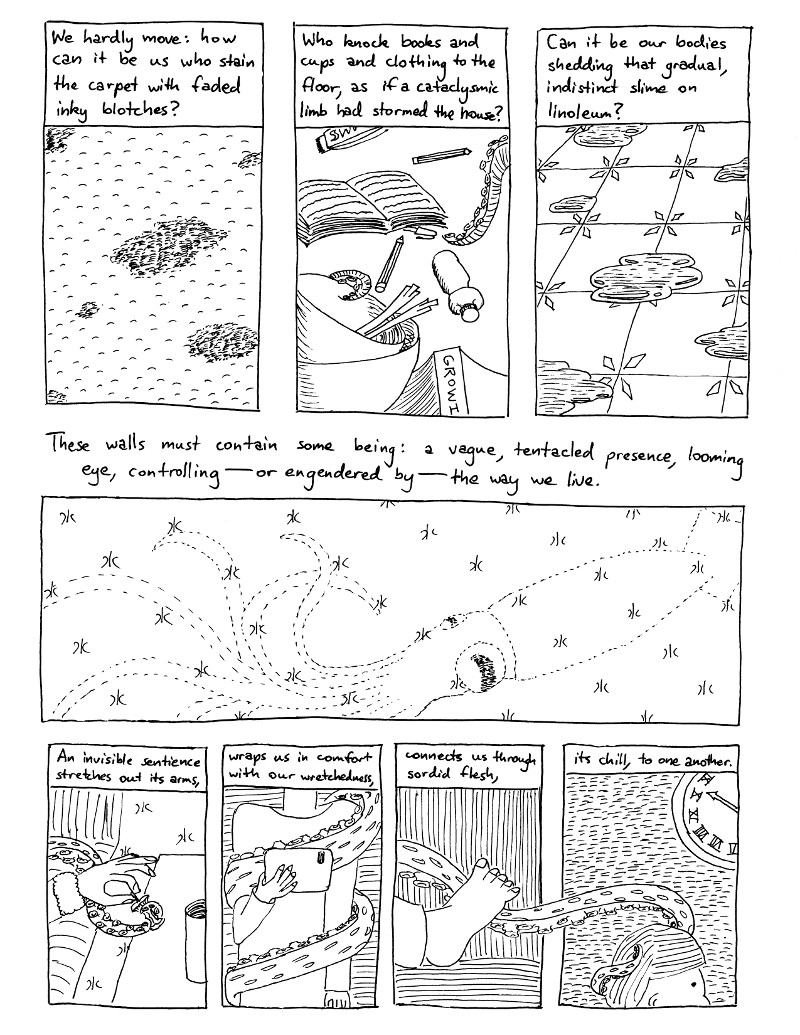 We hardly move: how
can it be us who stain
the carpet with faded
inky blotches?
Who knock books and
cups and clothing to the
floor, as if a cataclysmic
limb had stormed the house?
GROWI
Can it be our bodies
shedding that gradual,
indistinct slime on
linoleum?
These walls must contain some being: a vague, tentacled presence, looming
eye, controlling — or engendered by — the way we live.
An invisible sentience
stretches out its arms,
wraps us in comfort
with our wretchedness,
connects us through
sordid flesh,
its chill, to one another.